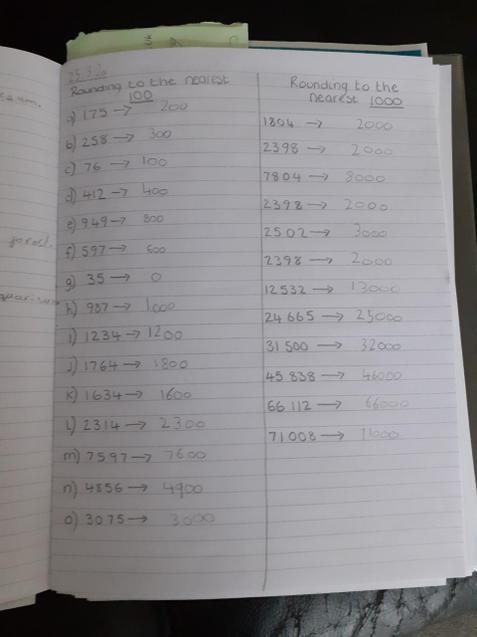 25.3.20
Rounding to the nearest
100
a) 175 → 200
b) 258 → 300
c) 76 → 100
d) 412 → 400
e) 949 → 800
f) 597 → 600
g) 35 → 0
h) 987 → 1000
i) 1234 → 1200
j) 1764 → 1800
k) 1634 → 1600
l) 2314 → 2300
m) 7597 → 7600
n) 4856 → 4900
o) 3075 → 3000
Rounding to the
nearest 1000
1804 → 2000
2398 → 2000
7804 → 8000
2398 → 2000
2502 → 3000
2398 → 2000
12532 → 13000
24 665 → 25000
31 500 → 32000
45 838 → 46000
66 112 → 66000
71 008 → 71000